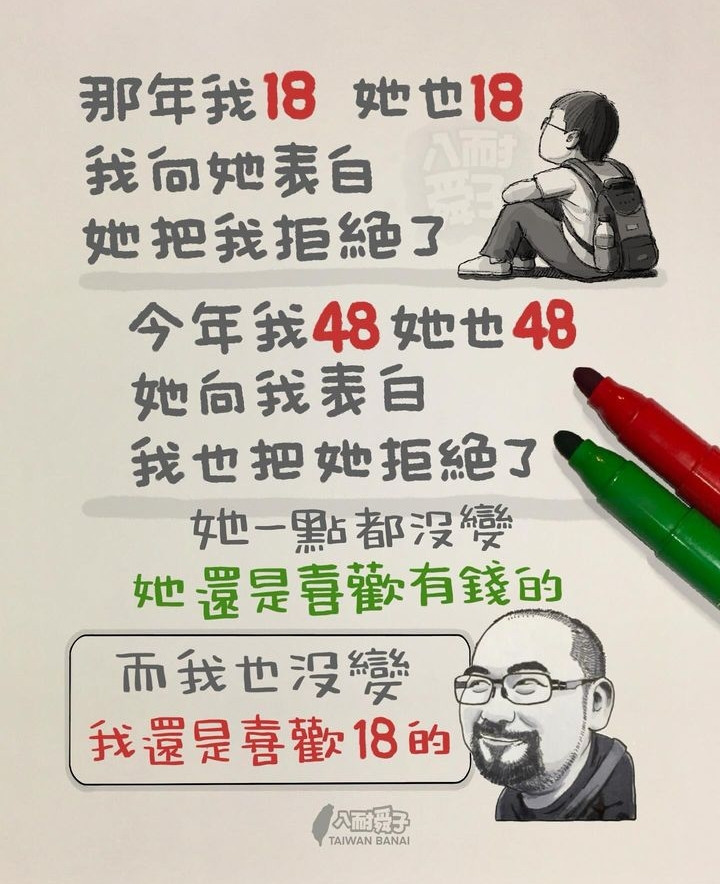 那年我18 她也18
我向她表白
她把我拒絕了
八耐舜子
今年我48她也48
她向我表白
我也把她拒絕了
她一點都沒變
她還是喜歡有錢的
而我也沒變
我還是喜歡18的
八耐舜子
TAIWAN BANAI